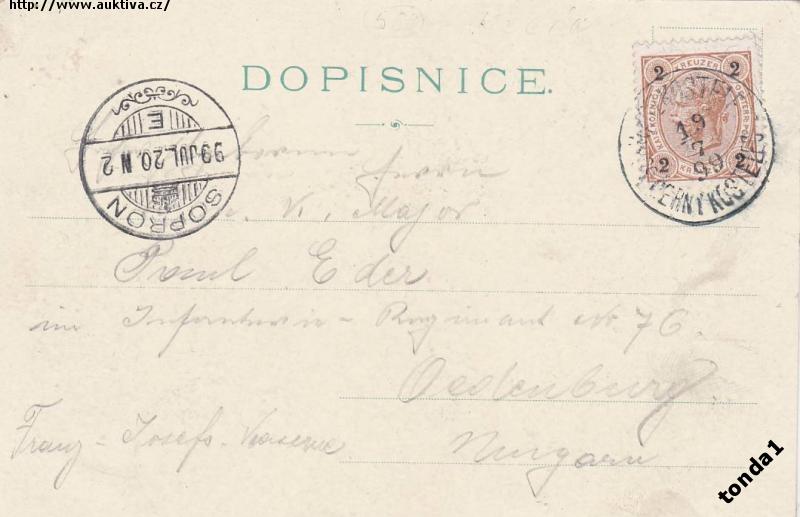 http://www.auktiva.cz/
DOPISNICE.
2 KREUZER 2
19
7
99
ČERNÝ KOSTELEC
2 2
E
99 JUL. 20. N 2
SOPRON
Herrn
K. Major
Paul Eder
im Infanterie - Regiment Nr. 76.
Oedenburg
Franz - Josefs - Kaserne
Ungarn
tonda1